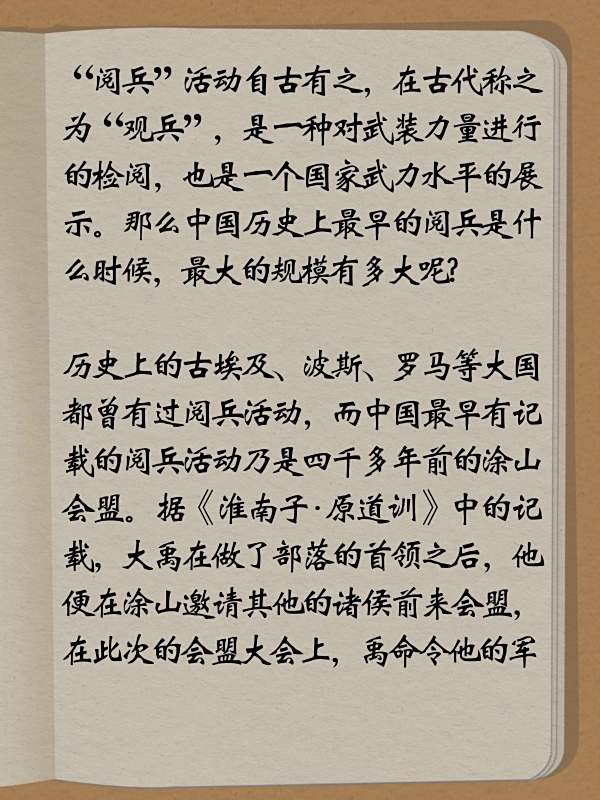 “阅兵”活动自古有之，在古代称之
为“观兵”，是一种对武装力量进行
的检阅，也是一个国家武力水平的展
示。那么中国历史上最早的阅兵是什
么时候，最大的规模有多大呢？
历史上的古埃及、波斯、罗马等大国
都曾有过阅兵活动，而中国最早有记
载的阅兵活动乃是四千多年前的涂山
会盟。据《淮南子·原道训》中的记
载，大禹在做了部落的首领之后，他
便在涂山邀请其他的诸侯前来会盟，
在此次的会盟大会上，禹命令他的军